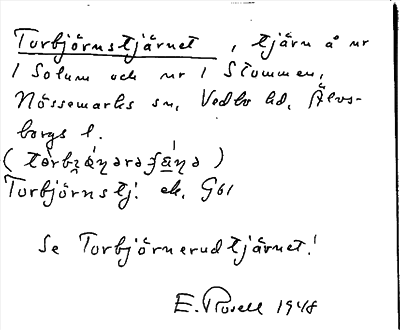 Torbjörnstjärnet, tjärn å nr
1 Solum och nr 1 Stommen,
Nössemarks sn, Vedbo hd, Älvs-
borgs l.
Torbjörnstj. ek. G61
Se Torbjörnerudtjärnet!
E. Rosell 1948